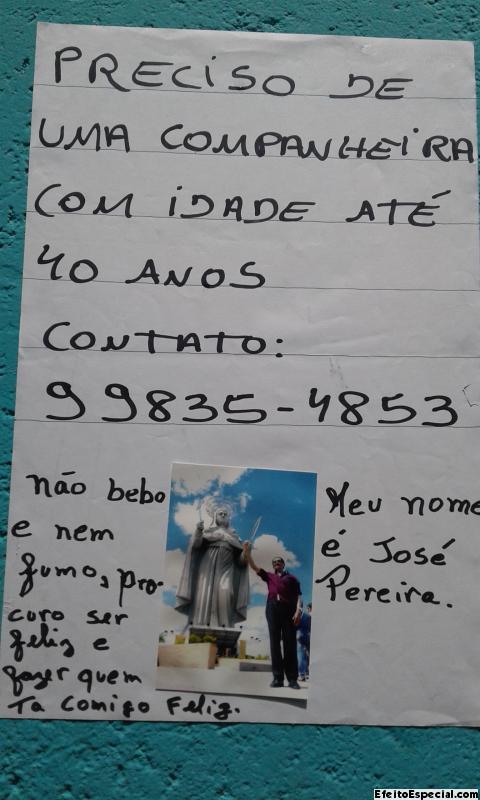 PRECISO DE
UMA COMPANHEIRA
COM IDADE ATÉ
40 ANOS
CONTATO:
99835-4853
não bebo
e nem
fumo, pro-
curo ser
feliz e
fazer quem
Ta comigo Feliz.
Meu nome
é José
Pereira.
EfeitoEspecial.com